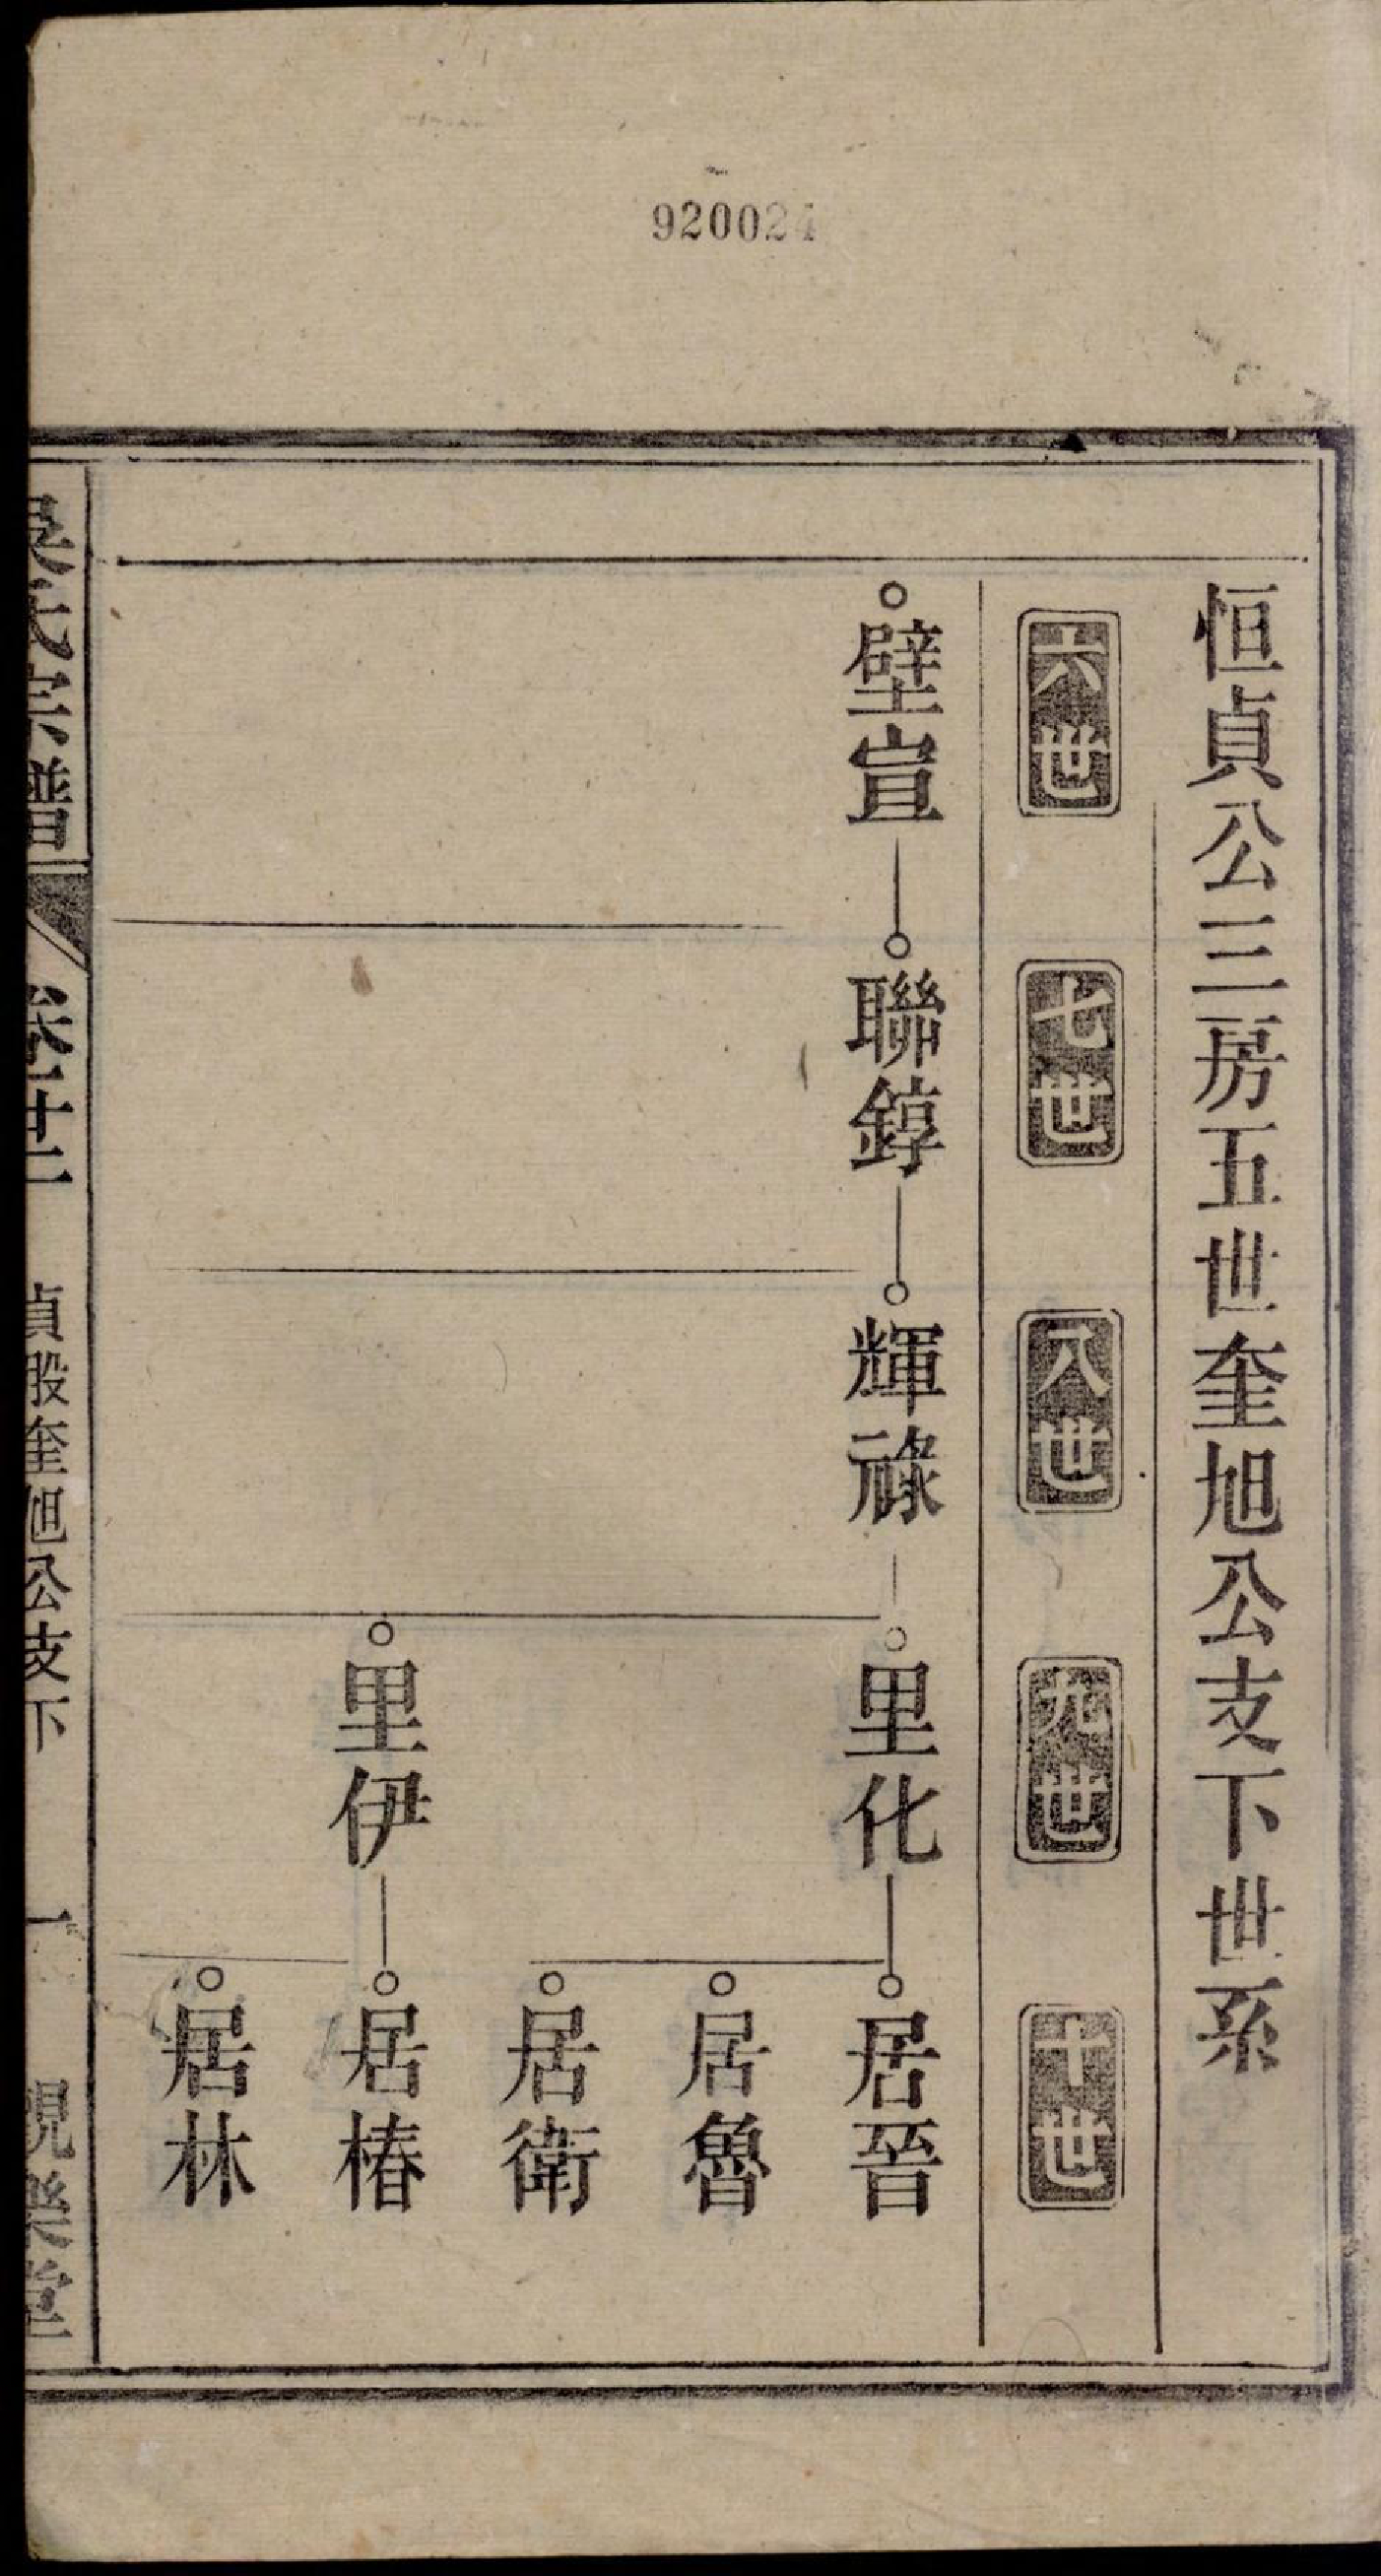 920024
恒貞公三房五世奎旭公支下世系
六世
七世
八世
九世
十世
壁宣
聯錞
輝祿
里化
里伊
居晉
居魯
居衛
居椿
居林
氏宗譜
卷
貞股奎旭公支下
一
樂堂